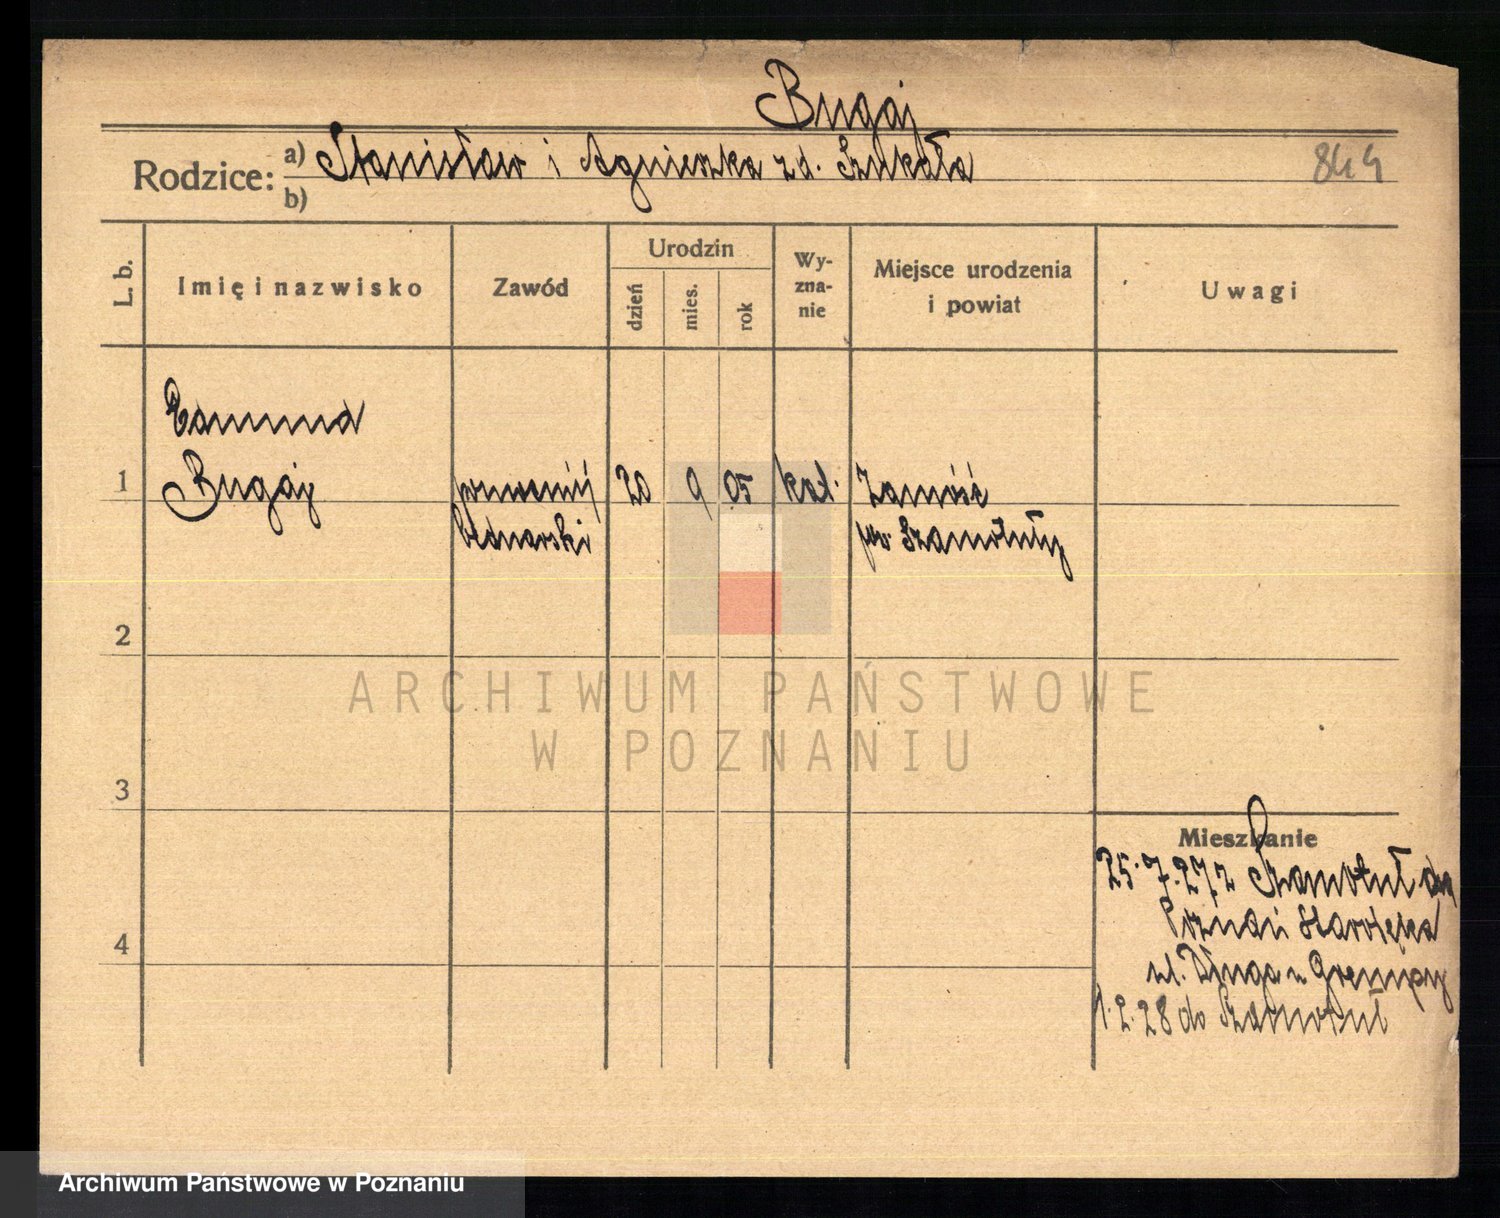 Bugaj
Rodzice: a) Stanisław i Agnieszka z d. Szukała
844
b)
L. b.
Imię i nazwisko
Zawód
Urodzin
dzień
mies.
rok
Wy-
zna-
nie
Miejsce urodzenia
i powiat
Uwagi
Edmund
1 Bugaj 20 9 05 kat. Zamość
bednarski pow. Szamotuły
2
ARCHIWUM PAŃSTWOWE
W POZNANIU
3
Mieszkanie
25.7.27 z Szamotuł do
Poznań Starołęka
4
ul. Długa u
1.2.28 do Szamotuł
Archiwum Państwowe w Poznaniu